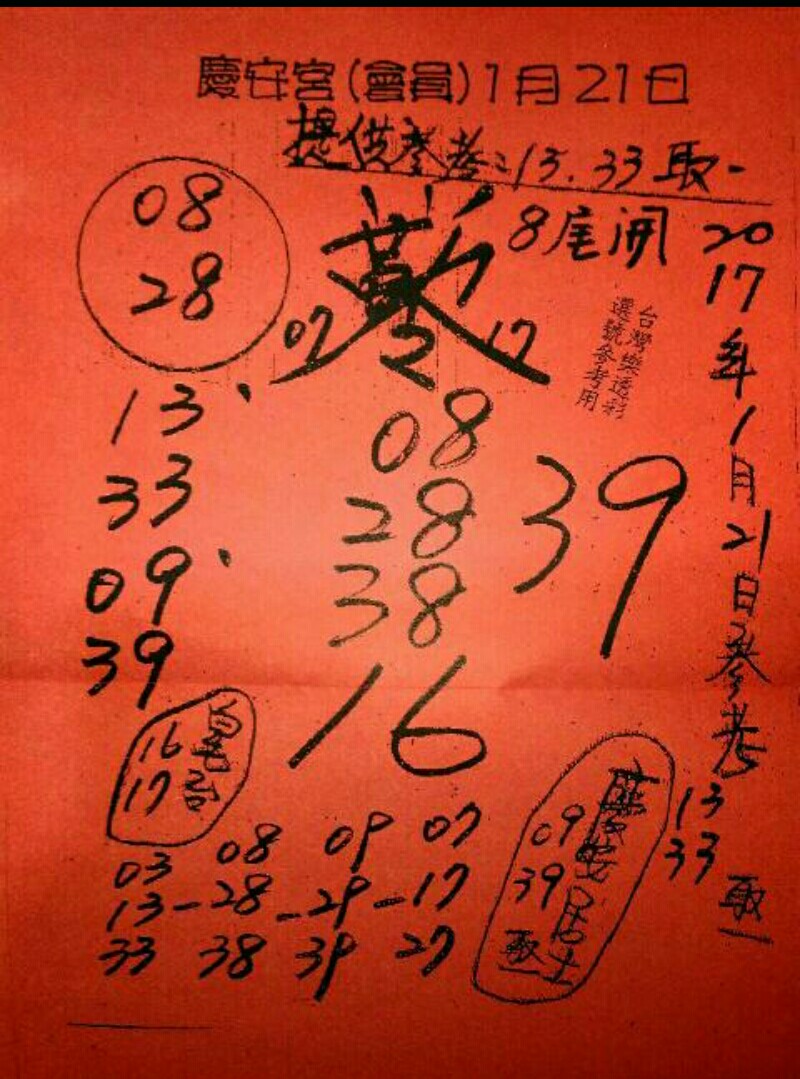 慶安宮(會員)1月21日
提供參考:13.33取一
8尾開
08
28
07
17
台灣樂透彩
選號參考用
2017年1月21日參考
13
33
取一
13
33
09
39
08
28
38
16
39
16
17
03 08 09 07
13-28-29-17
33 38 39 27
慶安居士
09
39
取一